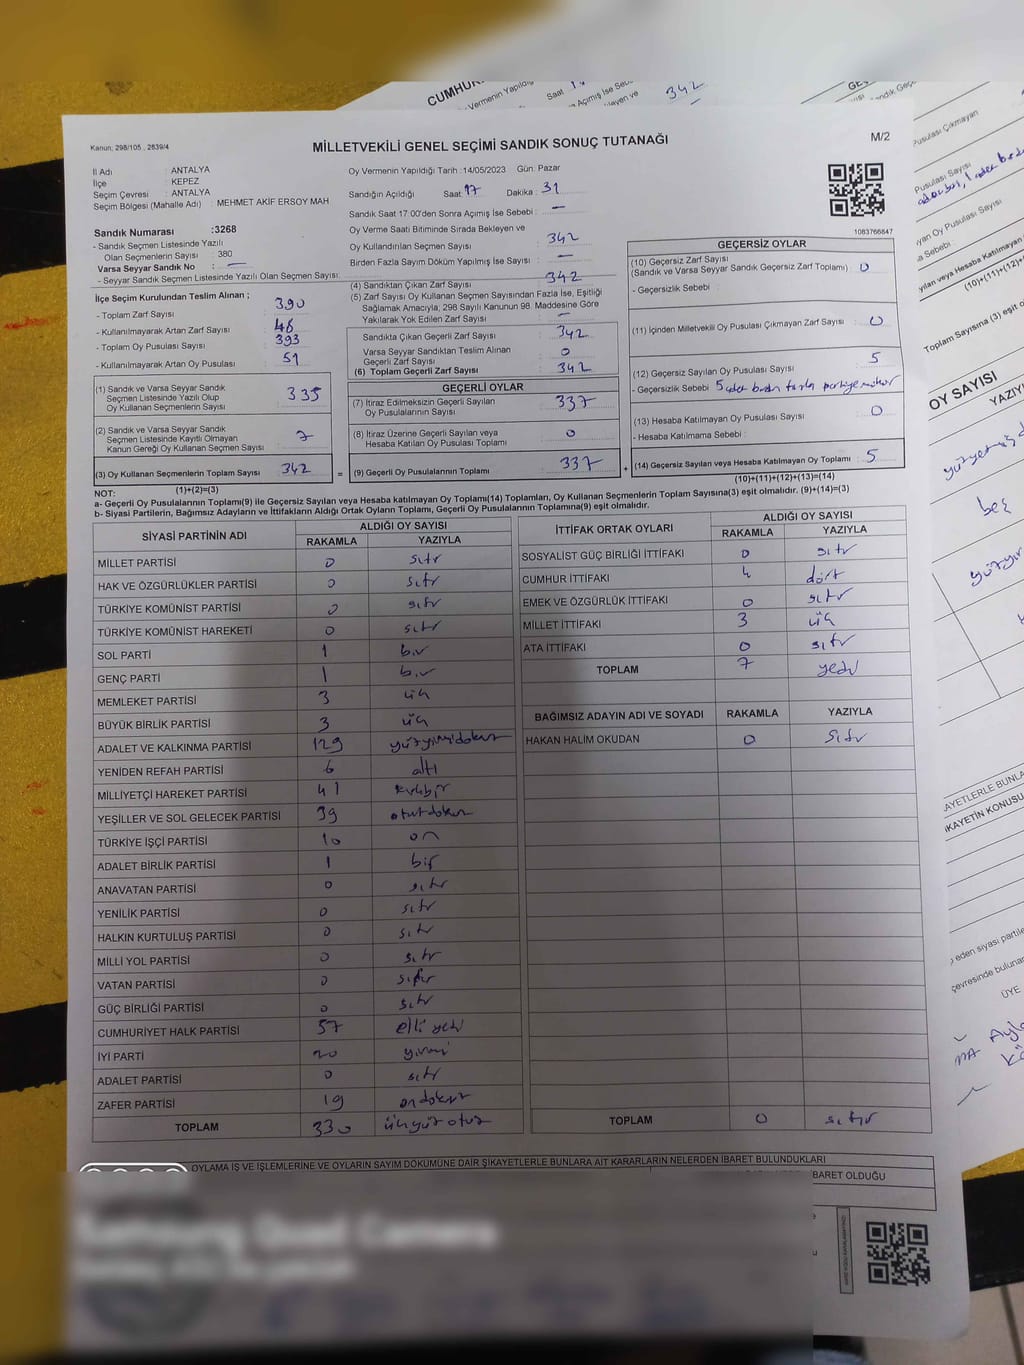 CUMHUR
Vermenin Yapıldığı
Saat
Açımış İse Seb
342
Kanun; 298/105 , 2839/4
MİLLETVEKİLİ GENEL SEÇİMİ SANDIK SONUÇ TUTANAĞI
M/2
İl Adı : ANTALYA
İlçe : KEPEZ
Seçim Çevresi : ANTALYA
Seçim Bölgesi (Mahalle Adı) : MEHMET AKİF ERSOY MAH
Oy Vermenin Yapıldığı Tarih :14/05/2023 Gün: Pazar
Sandığın Açıldığı Saat 17 Dakika : 31
Sandık Saat 17.00'den Sonra Açımış İse Sebebi : —
Oy Verme Saati Bitiminde Sırada Bekleyen ve
Oy Kullandırılan Seçmen Sayısı : 342
Birden Fazla Sayım Döküm Yapılmış İse Sayısı : —
1083766847
Sandık Numarası :3268
- Sandık Seçmen Listesinde Yazılı
Olan Seçmenlerin Sayısı : 380
Varsa Seyyar Sandık No : —
- Seyyar Sandık Seçmen Listesinde Yazılı Olan Seçmen Sayısı:
İlçe Seçim Kurulundan Teslim Alınan ;
- Toplam Zarf Sayısı : 390
- Kullanılmayarak Artan Zarf Sayısı : 48
- Toplam Oy Pusulası Sayısı : 393
- Kullanılmayarak Artan Oy Pusulası : 51
(1) Sandık ve Varsa Seyyar Sandık
Seçmen Listesinde Yazılı Olup
Oy Kullanan Seçmenlerin Sayısı : 335
(2) Sandık ve Varsa Seyyar Sandık
Seçmen Listesinde Kayıtlı Olmayan
Kanun Gereği Oy Kullanan Seçmen Sayısı : 7
(3) Oy Kullanan Seçmenlerin Toplam Sayısı : 342
(1)+(2)=(3)
(4) Sandıktan Çıkan Zarf Sayısı : 342
(5) Zarf Sayısı Oy Kullanan Seçmen Sayısından Fazla İse, Eşitliği
Sağlamak Amacıyla; 298 Sayılı Kanunun 98. Maddesine Göre
Yakılarak Yok Edilen Zarf Sayısı : —
Sandıkta Çıkan Geçerli Zarf Sayısı : 342
Varsa Seyyar Sandıktan Teslim Alınan
Geçerli Zarf Sayısı : 0
(6) Toplam Geçerli Zarf Sayısı : 342
GEÇERLİ OYLAR
(7) İtiraz Edilmeksizin Geçerli Sayılan
Oy Pusulalarının Sayısı : 337
(8) İtiraz Üzerine Geçerli Sayılan veya
Hesaba Katılan Oy Pusulası Toplamı : 0
= (9) Geçerli Oy Pusulalarının Toplamı : 337
GEÇERSİZ OYLAR
(10) Geçersiz Zarf Sayısı
(Sandık ve Varsa Seyyar Sandık Geçersiz Zarf Toplamı) : 0
- Geçersizlik Sebebi :
(11) İçinden Milletvekili Oy Pusulası Çıkmayan Zarf Sayısı : 0
(12) Geçersiz Sayılan Oy Pusulası Sayısı : 5
- Geçersizlik Sebebi : 5 adet birden fazla partiye mühür
(13) Hesaba Katılmayan Oy Pusulası Sayısı : 0
- Hesaba Katılmama Sebebi :
+ (14) Geçersiz Sayılan veya Hesaba Katılmayan Oy Toplamı : 5
(10)+(11)+(12)+(13)=(14)
NOT:
a- Geçerli Oy Pusulalarının Toplamı(9) ile Geçersiz Sayılan veya Hesaba katılmayan Oy Toplamı(14) Toplamları, Oy Kullanan Seçmenlerin Toplam Sayısına(3) eşit olmalıdır. (9)+(14)=(3)
b- Siyasi Partilerin, Bağımsız Adayların ve İttifakların Aldığı Ortak Oyların Toplamı, Geçerli Oy Pusulalarının Toplamına(9) eşit olmalıdır.
SİYASİ PARTİNİN ADI ALDIĞI OY SAYISI
RAKAMLA YAZIYLA
MİLLET PARTİSİ 0 sıfır
HAK VE ÖZGÜRLÜKLER PARTİSİ 0 sıfır
TÜRKİYE KOMÜNİST PARTİSİ 0 sıfır
TÜRKİYE KOMÜNİST HAREKETİ 0 sıfır
SOL PARTİ 1 bir
GENÇ PARTİ 1 bir
MEMLEKET PARTİSİ 3 üç
BÜYÜK BİRLİK PARTİSİ 3 üç
ADALET VE KALKINMA PARTİSİ 129 yüzyirmidokuz
YENİDEN REFAH PARTİSİ 6 altı
MİLLİYETÇİ HAREKET PARTİSİ 41 kırkbir
YEŞİLLER VE SOL GELECEK PARTİSİ 39 otuzdokuz
TÜRKİYE İŞÇİ PARTİSİ 10 on
ADALET BİRLİK PARTİSİ 1 bir
ANAVATAN PARTİSİ 0 sıfır
YENİLİK PARTİSİ 0 sıfır
HALKIN KURTULUŞ PARTİSİ 0 sıfır
MİLLİ YOL PARTİSİ 0 sıfır
VATAN PARTİSİ 0 sıfır
GÜÇ BİRLİĞİ PARTİSİ 0 sıfır
CUMHURİYET HALK PARTİSİ 57 elli yedi
İYİ PARTİ 20 yirmi
ADALET PARTİSİ 0 sıfır
ZAFER PARTİSİ 19 ondokuz
TOPLAM 330 üçyüz otuz
İTTİFAK ORTAK OYLARI ALDIĞI OY SAYISI
RAKAMLA YAZIYLA
SOSYALİST GÜÇ BİRLİĞİ İTTİFAKI 0 sıfır
CUMHUR İTTİFAKI 4 dört
EMEK VE ÖZGÜRLÜK İTTİFAKI 0 sıfır
MİLLET İTTİFAKI 3 üç
ATA İTTİFAKI 0 sıfır
TOPLAM 7 yedi
BAĞIMSIZ ADAYIN ADI VE SOYADI RAKAMLA YAZIYLA
HAKAN HALİM OKUDAN 0 sıfır
TOPLAM 0 sıfır
OYLAMA İŞ VE İŞLEMLERİNE VE OYLARIN SAYIM DÖKÜMÜNE DAİR ŞİKAYETLERLE BUNLARA AİT KARARLARIN NELERDEN İBARET BULUNDUKLARI
BARET OLDUĞU
Pusulası Çıkmayan
Pusulası Sayısı
(10)+(11)+(12)+
Toplam Sayısına (3) eşit
OY SAYISI
YAZIY
beş
AYETLERLE BUNLA
İKAYETİN KONUSU
eden siyasi partile
çevresinde bulunan
ÜYE